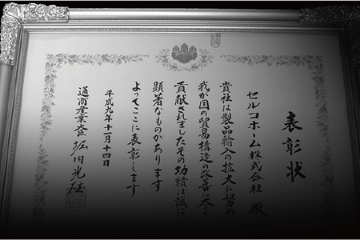 表彰状
セルコホーム株式会社 殿
貴社は製品輸入の拡大に努め
我が国の貿易構造の改善に大きく
貢献されましたその功績は誠に
顕著なものがあります
よってここに表彰します
平成九年十一月十四日
通商産業大臣 堀内光雄